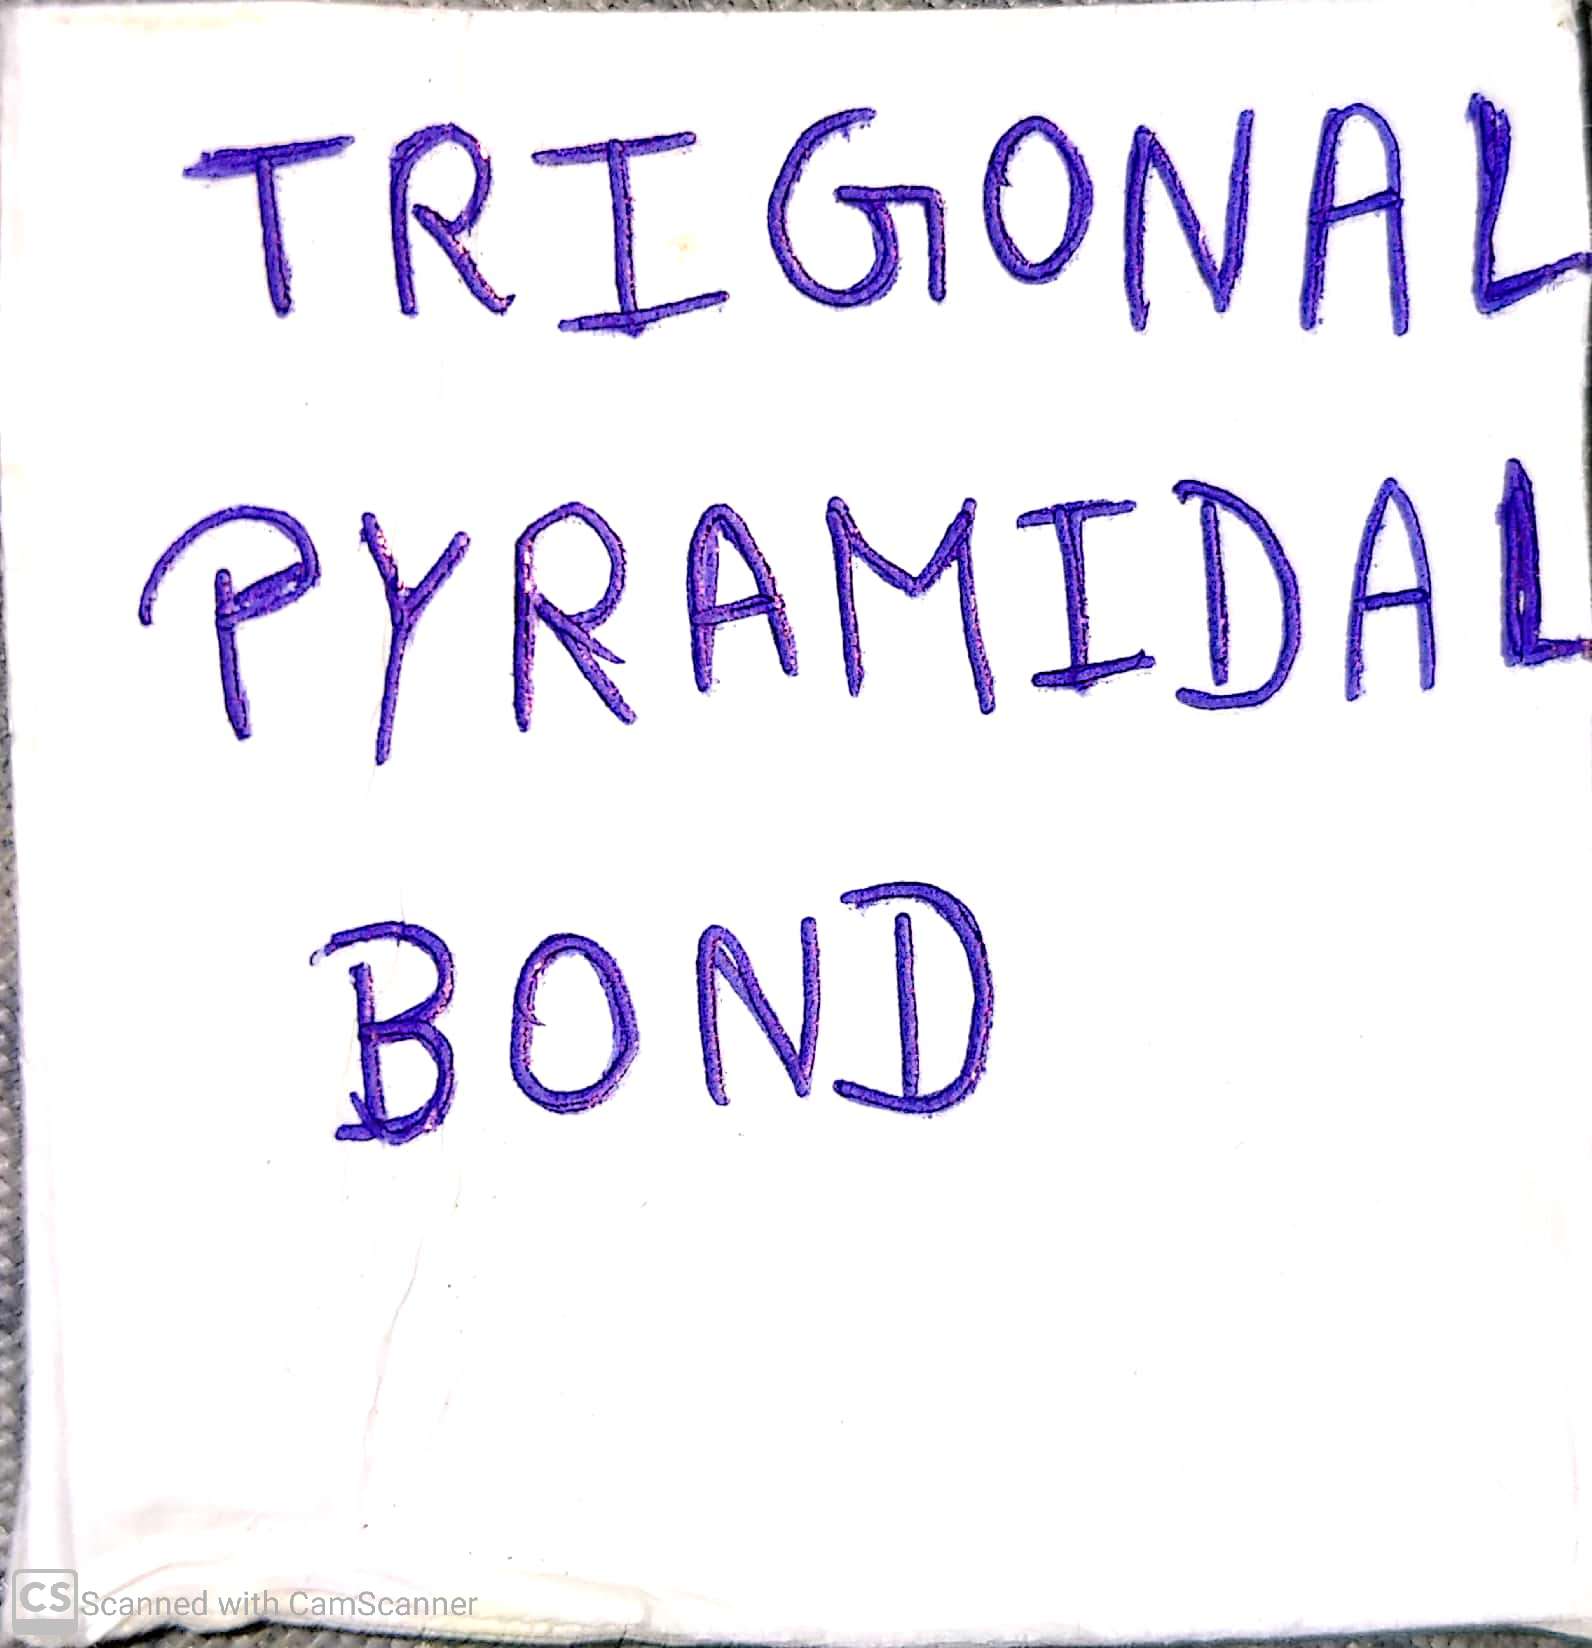 TRIGONAL
PYRAMIDAL
BOND
CS Scanned with CamScanner